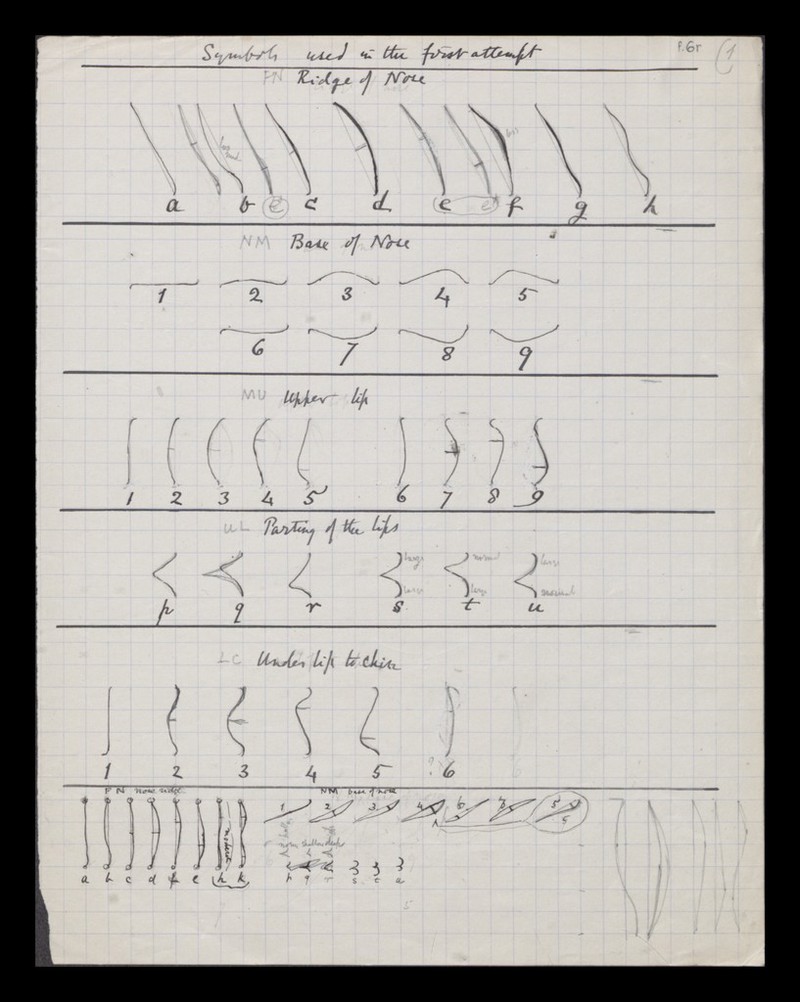 Symbols used in the first attempt
P.6r
1
FN Ridge of Nose
a b e c d e e f g h
NM Base of Nose
1 2 3 4 5
6 7 8 9
MU Upper lip
1 2 3 4 5 6 7 8 9
UL Parting of the lips
large normal large
large large normal
p q r s t u
LC Under lip to chin
1 2 3 4 5 ? 6
FN nose ridge NM base of nose
1 2 3 4 6 5
a b c d f e h k
p q r s t u